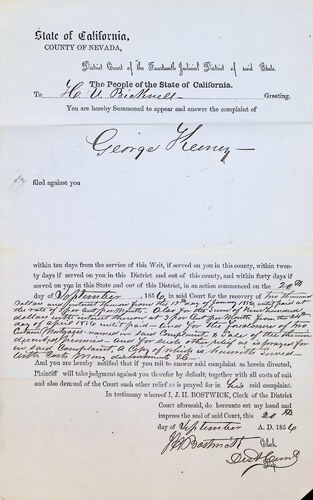 State of California,
COUNTY OF NEVADA,
District Court of the Fourteenth Judicial District of said State.
The People of the State of California.
To H. V. Bicknell Greeting.
You are hereby Summoned to appear and answer the complaint of
George Keeney
filed against you
within ten days from the service of this Writ, if served on you in this county, within
twenty days if served on you in this District and out of this county, and within forty days if
served on you in this State and out of this District, in an action commenced on the 20th
day of September, 1856, in said Court for the recovery of Two thousand
Dollars and interest thereon from the day of January 1856 until paid at
the rate of per cent per Month. Also for the sum of Nine Hundred
dollars with interest thereon at 3 per cent per Month from the
day of April 1856 until paid for the foreclosure of two
certain Mortgages named in said Complaint & sale of the therein
described premises and for such other relief as is prayed for
in said Complaint, a Copy of which is herewith served
with costs &
And you are hereby notified that if you fail to answer said complaint as herein directed,
Plaintiff will take judgment against you thereby by default; together with all costs of suit
and also demand of the Court such other relief as is prayed for in his said complaint.
In testimony whereof I, J. H. BOSTWICK, Clerk of the District
Court aforesaid, do hereunto set my hand and
impress the seal of said Court, this 20th
day of September A. D. 1856
J H Bostwick Clerk.